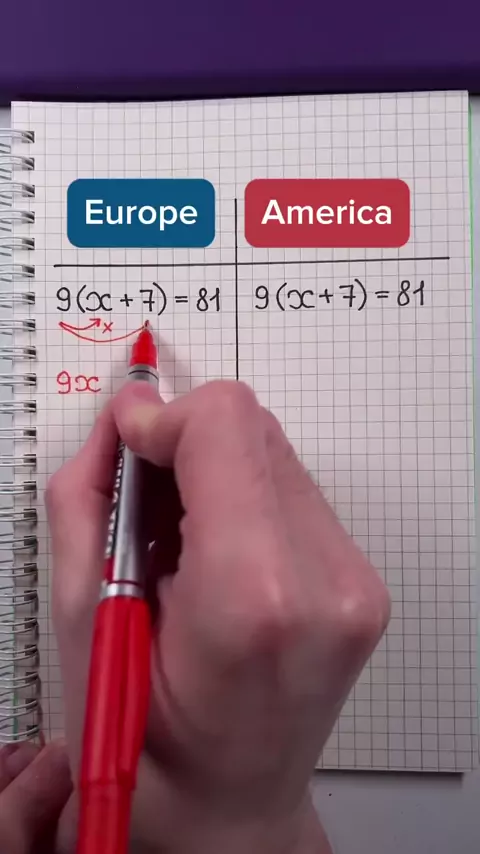 Europe America
9(x+7)=81 9(x+7)=81
x
9x